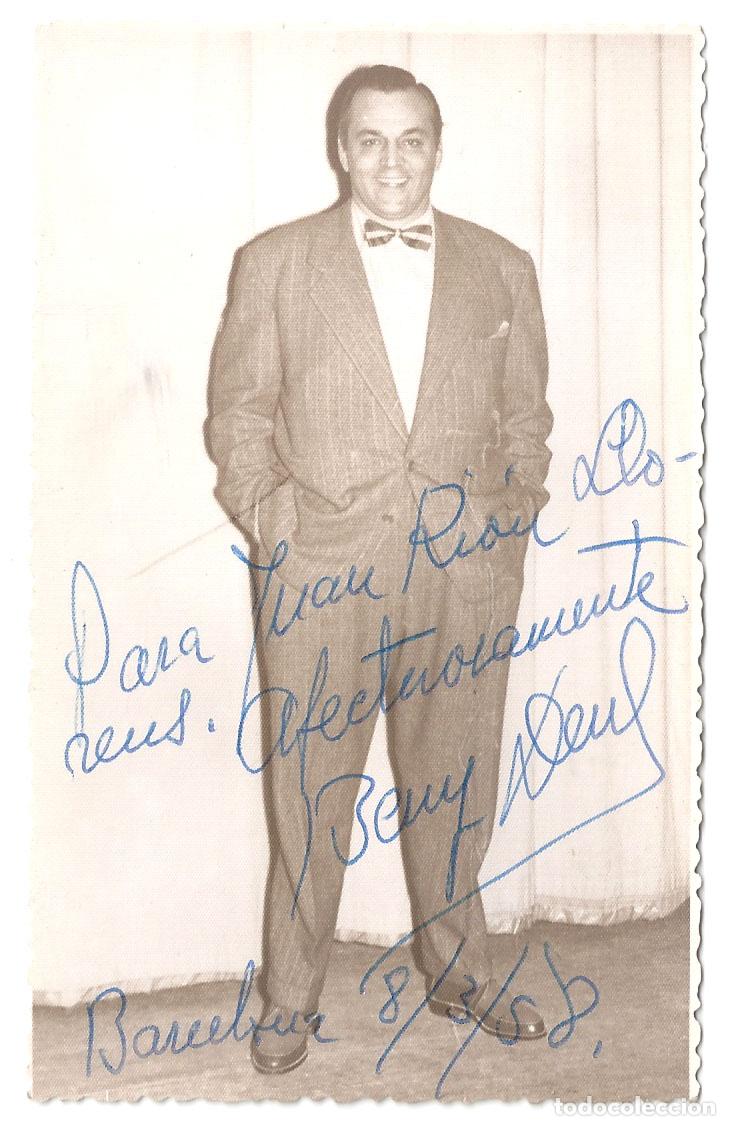 Para Juan Rión Llo-
rens. Afectuosamente
Beny Deus
Barcelona 8/3/58.
todocoleccion